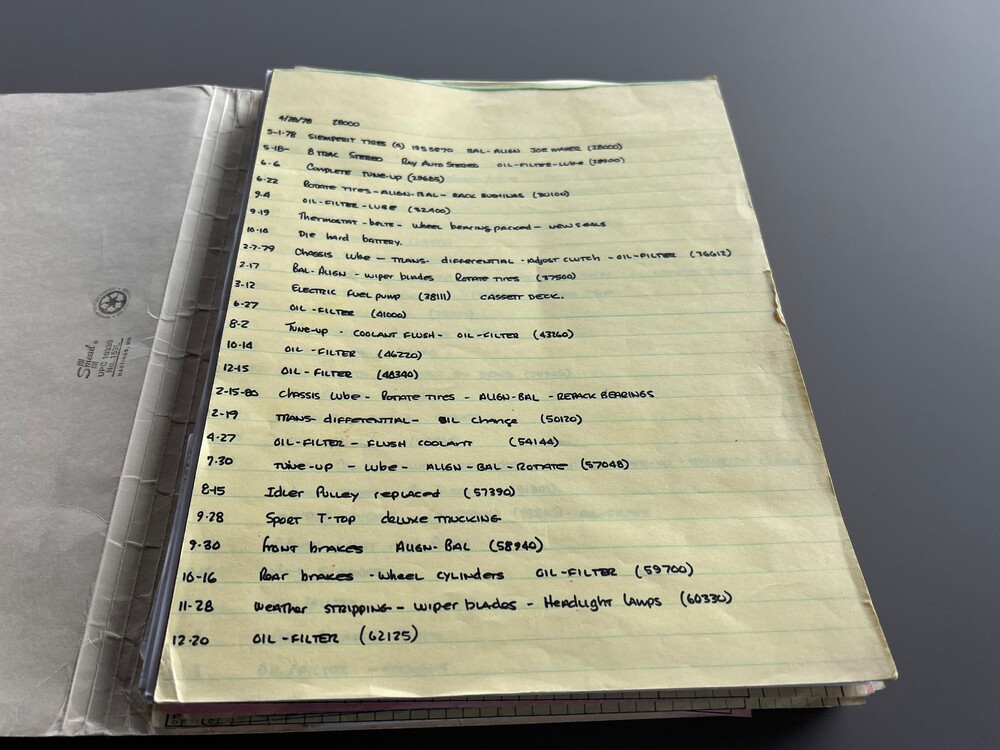 Smead®
UPC 10330
No. 153L
HASTINGS, MN
4/28/78 28000
5-1-78 SIEMPERIT TIRES (4) 195SR70 BAL-ALIGN JOE MAHER (28000)
5-18- 8 TRAC STEREO RAY AUTO STEREO OIL-FILTER-LUBE (28900)
6-6 COMPLETE TUNE-UP (29685)
6-22 ROTATE TIRES-ALIGN-BAL- RACK BUSHINGS (30100)
9-4 OIL-FILTER-LUBE (32400)
9-19 THERMOSTAT-BELTS- WHEEL BEARING PACKED- NEW SEALS
10-10 DIE HARD BATTERY.
2-7-79 CHASSIS LUBE - TRANS. DIFFERENTIAL -ADJUST CLUTCH -OIL-FILTER (36612)
2-17 BAL-ALIGN - WIPER BLADES ROTATE TIRES (37500)
3-12 ELECTRIC FUEL PUMP (38111) CASSETT DECK.
6-27 OIL-FILTER (41000)
8-2 TUNE-UP - COOLANT FLUSH- OIL-FILTER (43260)
10-14 OIL-FILTER (46220)
12-15 OIL-FILTER (48340)
2-15-80 CHASSIS LUBE - ROTATE TIRES - ALIGN-BAL - REPACK BEARINGS
2-19 TRANS- DIFFERENTIAL- OIL CHANGE (50120)
4-27 OIL-FILTER - FLUSH COOLANT (54144)
7-30 TUNE-UP - LUBE- ALIGN-BAL-ROTATE (57048)
8-15 IDLER PULLEY REPLACED (57390)
9-28 SPORT T-TOP DELUXE TRUCKING
9-30 FRONT BRAKES ALIGN-BAL (58940)
10-16 REAR BRAKES -WHEEL CYLINDERS OIL-FILTER (59700)
11-28 WEATHER STRIPPING- WIPER BLADES - HEADLIGHT LAMPS (60330)
12-20 OIL-FILTER (62125)